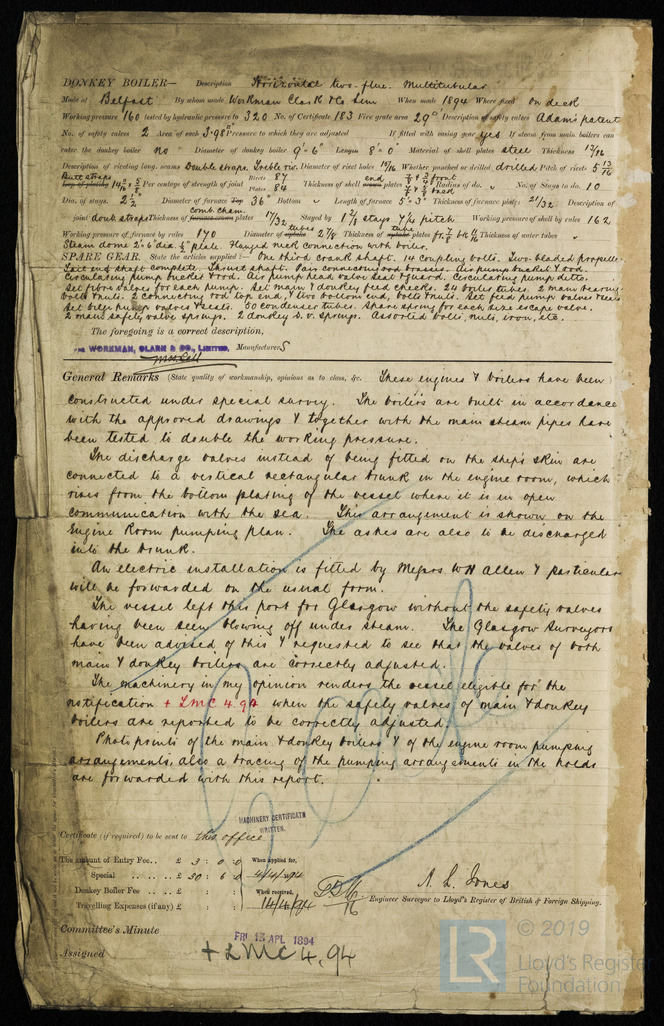 DONKEY BOILER— Description Horizontal two flue. Multitubular
Made at Belfast By whom made Workman Clark & Co Lim When made 1894 Where fixed on deck
Working pressure 160 tested by hydraulic pressure to 320 No. of Certificate 183 Fire grate area 29 Description of safety valves Adam's patent
No. of safety valves 2 Area of each 3.98" Pressure to which they are adjusted If fitted with easing gear yes If steam from main boilers can
enter the donkey boiler no Diameter of donkey boiler 9'.6" Length 8'.0" Material of shell plates steel Thickness 13/16
Description of riveting long. seams Double straps. Treble riv. Diameter of rivet holes 15/16 Whether punched or drilled drilled Pitch of rivets 5 13/16
Butt straps Per centage of strength of joint Rivets 87 Plates 84 Thickness of shell end plates 7/8 front 7/8 back Radius of do. " No. of Stays to do. 10
Dia. of stays. 2 1/2 Diameter of furnace Top 36" Bottom " Length of furnace 5'.3" Thickness of furnace plates 21/32 Description of
joint doub straps Thickness of comb. cham. plates 17/32 Stayed by 1 3/8 stays 7 1/4 pitch Working pressure of shell by rules 162
Working pressure of furnace by rules 170 Diameter of tubes 2 7/8 Thickness of tube plates fr. 7/8 bk 11/16 Thickness of water tubes "
Steam dome 2'.6" dia. 1/2" plate. Flanged neck connection with boiler.
SPARE GEAR. State the articles supplied:— One third crank shaft. 14 coupling bolts. Two-bladed propeller
Tail end shaft complete. Thrust shaft. Pair connecting rod brasses. Air pump bucket & rod.
Circulating pump bucket & rod. Air pump head valve seat & guard. Circulating pump ditto.
Set fibre valves for each pump. Set main & donkey feed checks. 24 boiler tubes. 2 main bearing
bolts & nuts. 2 connecting rod top end, & two bottom end, bolts & nuts. Set feed pump valves & seats
Set bilge pump valves & seats. 50 condenser tubes. Spare spring for each size escape valve.
2 main safety valve springs. 2 donkey S.V. springs. Assorted bolts, nuts, iron, etc.
The foregoing is a correct description,
WORKMAN, CLARK & CO., LIMITED, Manufacturers
General Remarks (State quality of workmanship, opinions as to class, &c. These engines & boilers have been
constructed under special survey. The boilers are built in accordance
with the approved drawings & together with the main steam pipes have
been tested to double the working pressure.
The discharge valves instead of being fitted on the ship's skin are
connected to a vertical rectangular trunk in the engine room, which
rises from the bottom plating of the vessel where it is in open
communication with the sea. This arrangement is shown on the
Engine Room pumping plan. The ashes are also to be discharged
into the trunk.
An electric installation is fitted by Messrs W H Allen & particular
will be forwarded on the usual form.
The vessel left this port for Glasgow without the safety valves
having been seen blowing off under steam. The Glasgow Surveyors
have been advised of this & requested to see that the valves of both
main & donkey boilers are correctly adjusted.
The machinery in my opinion renders the vessel eligible for the
notification + LMC 4.94 when the safety valves of main & donkey
boilers are reported to be correctly adjusted.
Photo prints of the main & donkey boilers & of the engine room pumping
arrangements, also a tracing of the pumping arrangements in the holds
are forwarded with this report.
MACHINERY CERTIFICATE
WRITTEN.
Certificate (if required) to be sent to this office
The amount of Entry Fee.. £ 3 : 0 : 0 When applied for,
Special .. .. £ 30 : 6 : 0 4/4/94
Donkey Boiler Fee .. .. £ : : When received,
Travelling Expenses (if any) £ : : 14/4/94
A. L. Jones
Engineer Surveyor to Lloyd's Register of British & Foreign Shipping.
Committee's Minute FRI 13 APL 1894
Assigned + LMC 4.94
© 2019
LR Lloyd's Register
Foundation